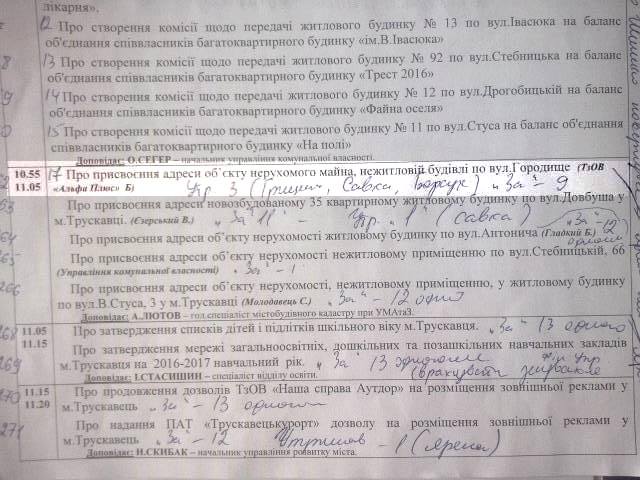 лікарня».
12 Про створення комісії щодо передачі житлового будинку № 13 по вул.Івасюка на баланс
об'єднання співвласників багатоквартирного будинку «ім.В.Івасюка»
13 Про створення комісії щодо передачі житлового будинку № 92 по вул.Стебницька на баланс
об'єднання співвласників багатоквартирного будинку «Трест 2016»
14 Про створення комісії щодо передачі житлового будинку № 12 по вул.Дрогобицькій на баланс
об'єднання співвласників багатоквартирного будинку «Файна оселя»
15 Про створення комісії щодо передачі житлового будинку № 11 по вул.Стуса на баланс об'єднання
співвласників багатоквартирного будинку «На полі»
Доповідає: О.СЕГЕР – начальник управління комунальної власності.
10.55 17 Про присвоєння адреси об`єкту нерухомого майна, нежитловій будівлі по вул.Городище (ТзОВ
11.05 «Альфа Плюс» Б) Утр 3 (Грицик, Савка, Борсук) „За" – 9
Про присвоєння адреси новозбудованому 35 квартирному житловому будинку по вул.Довбуша у
м.Трускавці. (Єзерський В.) „За" 11 – Утр. „1" (Савка)
Про присвоєння адреси об'єкту нерухомості житловому будинку по вул.Антонича (Гладкий Б.) „За" – 12
Про присвоєння адреси об'єкту нерухомості нежитловому приміщенню по вул.Стебницькій, 66
(Управління комунальної власності) „За" – 1
266 Про присвоєння адреси об'єкту нерухомості, нежитловому приміщенню, у житловому будинку
по вул.В.Стуса, 3 у м.Трускавці (Молодавець С.) „За" – 12
Доповідає: А.ЛЮТОВ – гол.спеціаліст містобудівного кадастру при УМАтаЗ.
268 11.05 Про затвердження списків дітей і підлітків шкільного віку м.Трускавця. „За" 13
11.15 Про затвердження мережі загальноосвітніх, дошкільних та позашкільних навчальних закладів
269 м.Трускавця на 2016-2017 навчальний рік. „За" 13
Доповідає: І.СТАСИШИН – спеціаліст відділу освіти.
270 11.15 Про продовження дозволів ТзОВ «Наша справа Аутдор» на розміщення зовнішньої реклами у
11.20 м.Трускавець „За" – 13
271 Про надання ПАТ «Трускавецькурорт» дозволу на розміщення зовнішньої реклами у
м.Трускавець „За" – 12
Доповідає: Н.СКИБАК – начальник управління розвитку міста.